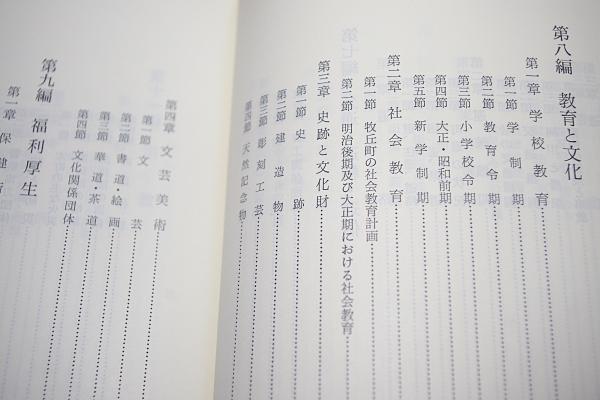 第八編 教育と文化
第一章 学校教育
第一節 学制期
第二節 教育令期
第三節 小学校令期
第四節 大正・昭和前期
第五節 新学制期
第二章 社会教育
第一節 牧丘町の社会教育計画
第二節 明治後期及び大正期における社会教育
第三章 史跡と文化財
第一節 史跡
第二節 建造物
第三節 彫刻工芸
第四節 天然記念物
第四章 文芸美術
第一節 文芸
第二節 書道・絵画
第三節 華道・茶道
第四節 文化関係団体
第九編 福利厚生
第一章 保健